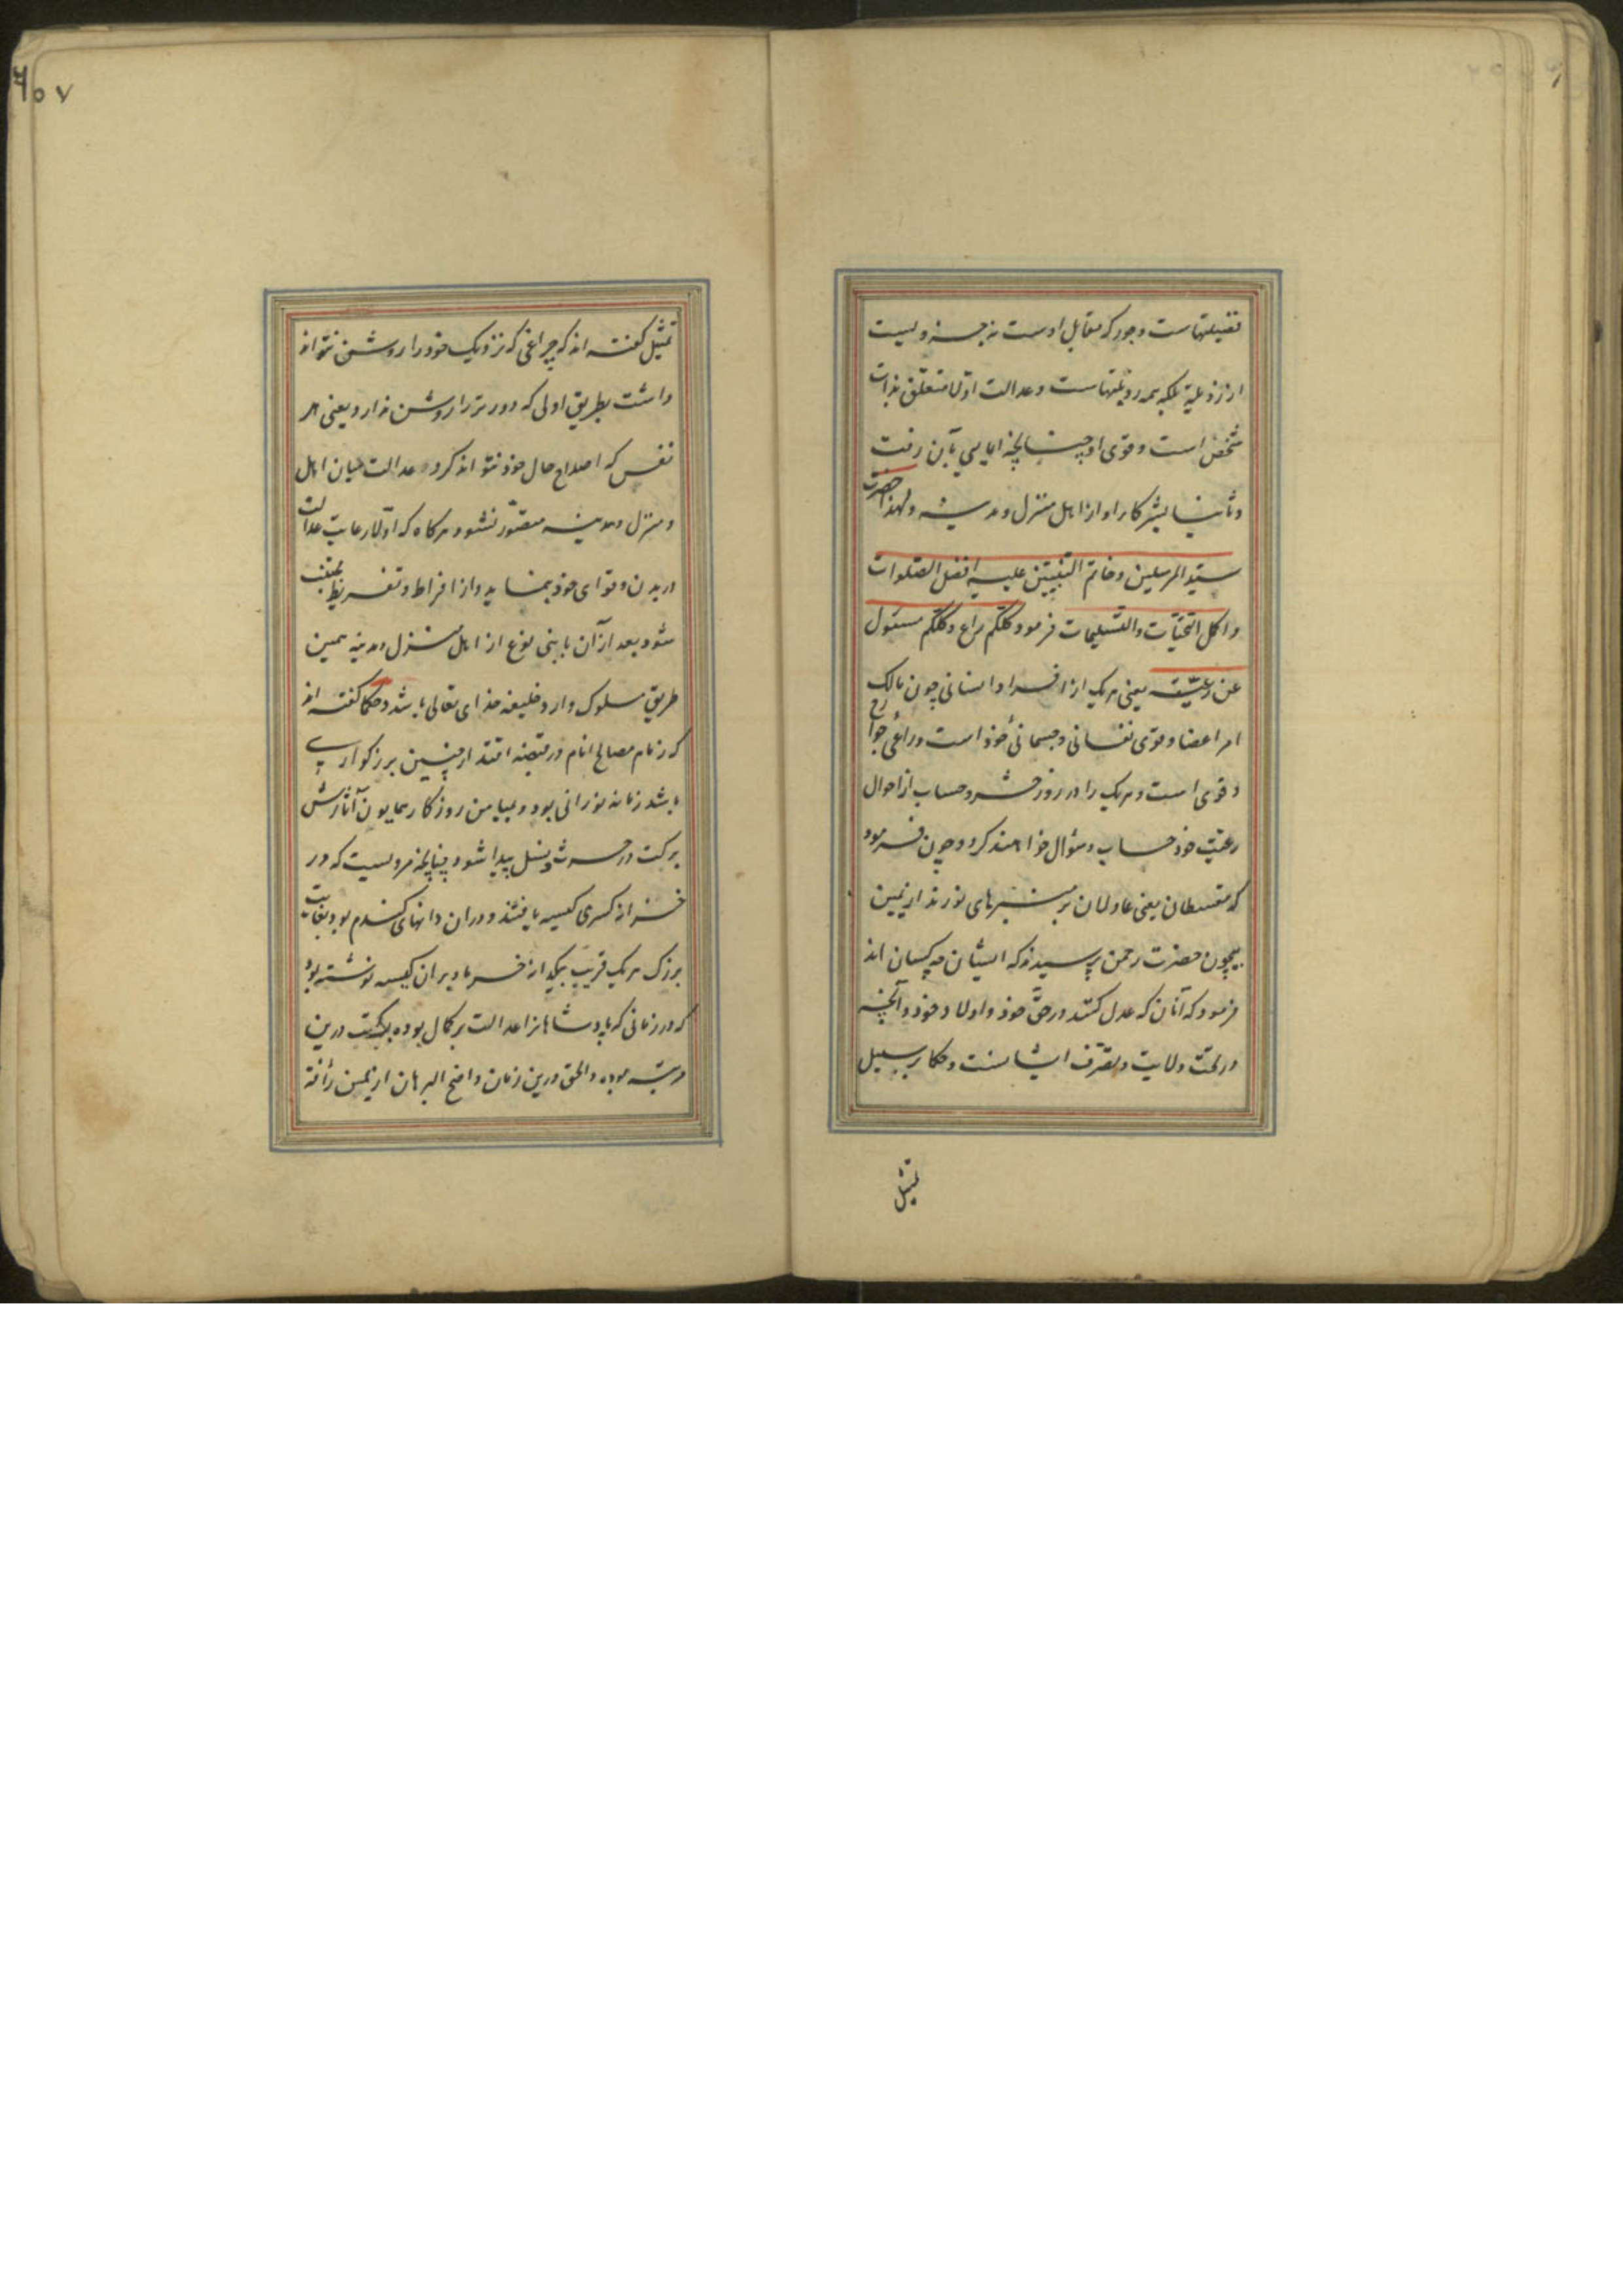 فضیلتهاست وجور که مقابل اوست نه جزویست
از رذیلة بلکه همه رذیلتهاست وعدالت اولا متعلق بذات
شخص است وقوی او چنانچه ایمایی بآن رفت
وثانیا بشرکاء او از اهل منزل ومدینه ولهذا حضرت
سید المرسلین وخاتم النبیین علیه افضل الصلوات
واکمل التحیات والتسلیمات فرمود کلکم راع وکلکم مسئول
عن رعیته یعنی هر یک از افراد انسانی چون مالک
امر اعضا وقوی نفسانی وجسمانی خوذ است وراعی جوارح
وقوی است وهر یک را در روز حشر وحساب از احوال
رعیت خوذ حساب وسؤال خواهند کرد وچون فرمود
که مقسطان یعنی عادلان بر منبرهای نورند از یمین
بیچون حضرت رحمن پرسیدند که ایشان چه کسان اند
فرمود که آنان که عدل کنند در حق خوذ واولاد خوذ وآنچه
در تحت ولایت وتصرف ایشانست وحکما بر سبیل
تمثیل
٦٠٧
تمثیل گفته اند که چراغی که نزدیک خوذ را روشن نتواند
داشت بطریق اولی که دورتر را روشن ندارد یعنی هر
نفس که اصلاح حال خوذ نتواند کرد عدالت میان اهل
ومنزل ومدینه متصور نشود هرکاه که اولا رعایت عدالت
در بدن وقوای خوذ بنماید واز افراط وتفریط مجتنب
شود بعد از آن با بنی نوع از اهل منزل ومدینه همین
طریق مسلوک دارد خلیفه خذای تعالی باشد وحکما گفته اند
که زمام مصالح انام در قبضه اقتدار چنین بزرکواری
باشد زمانه نورانی بود وبمیامن روزکار همایون آثارش
برکت در حرث ونسل پیدا شود چنانچه مرویست که در
خزانه کسری کیسه یافتند ودران دانهای کندم بود بغایت
بزرک هر یک قریب بیکدانه خرما وبران کیسه نوشته بود
که در زمانی که پادشاهانرا عدالت بر کمال بوده برکت درین
مرتبه بوده والحق درین زمان واضح البرهان از یمن رأفت